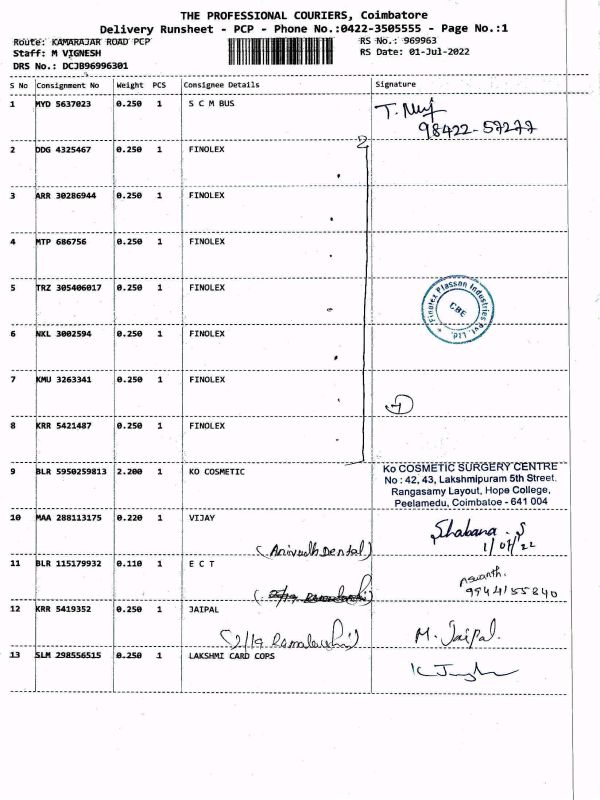 THE PROFESSIONAL COURIERS, Coimbatore
Delivery Runsheet - PCP - Phone No.:0422-3505555 - Page No.:1
Route: KAMARAJAR ROAD PCP RS No.: 969963
Staff: M VIGNESH RS Date: 01-Jul-2022
DRS No.: DCJB96996301
S No Consignment No Weight PCS Consignee Details Signature
1 MYD 5637023 0.250 1 S C M BUS
98422-57277
2 DDG 4325467 0.250 1 FINOLEX
3 ARR 30286944 0.250 1 FINOLEX
4 MTP 686756 0.250 1 FINOLEX
5 TRZ 305406017 0.250 1 FINOLEX
Finolex Plasson Industries Pvt. Ltd.
CBE
6 NKL 3002594 0.250 1 FINOLEX
7 KMU 3263341 0.250 1 FINOLEX
8 KRR 5421487 0.250 1 FINOLEX
9 BLR 5950259813 2.200 1 KO COSMETIC
Ko COSMETIC SURGERY CENTRE
No : 42, 43, Lakshmipuram 5th Street,
Rangasamy Layout, Hope College,
Peelamedu, Coimbatoe - 641 004
10 MAA 288113175 0.220 1 VIJAY
(Anirudh Dental) Shabana . S
1/07/22
11 BLR 115179932 0.110 1 E C T
Aswanth.
9944155840
12 KRR 5419352 0.250 1 JAIPAL
M. Jaipal.
13 SLM 298556515 0.250 1 LAKSHMI CARD COPS